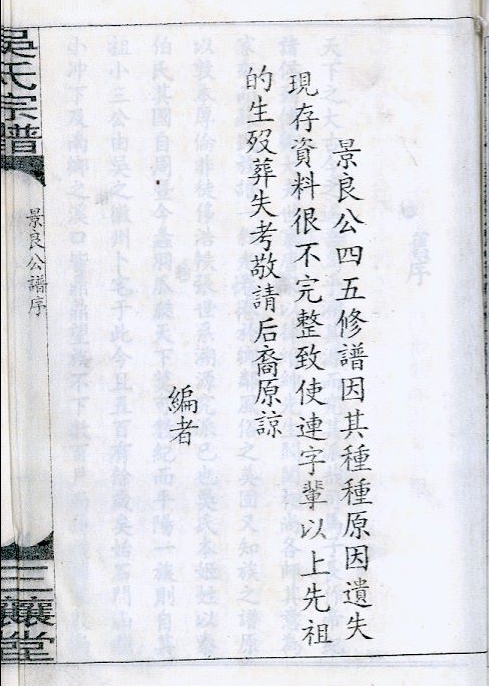 景良公四五修譜因其種種原因遺失
現存資料很不完整致使連字輩以上先祖
的生歿葬失考敬請后裔原諒
編者
吳氏宗譜
景良公譜序
三讓堂